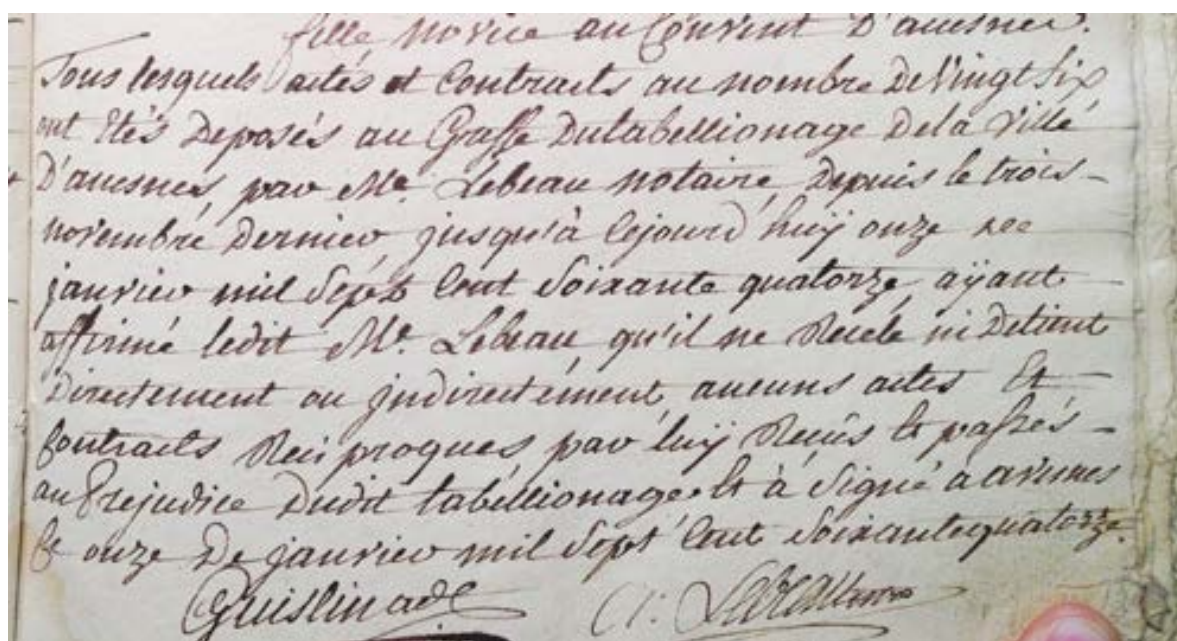 fille novice au Couvent D'auesnes.
Tous lesquels actés et Contracts au nombre De Vingt Six
ont Etés Deposés au Greffe Du tabellionage De la Ville
D'auesnes, par Me. Lebeau notaire, Depuis le trois -
novembre Dernier, jusqu'à Cejourd'huÿ onze
janvier mil Sept Cent Soixante quatorze, aÿant
affirmé ledit Me. Lebeau qu'il ne Recele ni Detient
Directement ou jndirectement, aucuns actes Et
Contracts Reciproques par luÿ Recûs Et passés -
au Prejudice Dudit tabellionage. Et à Signé à avesnes
le onze De janvier mil Sept Cent Soixante quatorze.
Guislin Lebeau